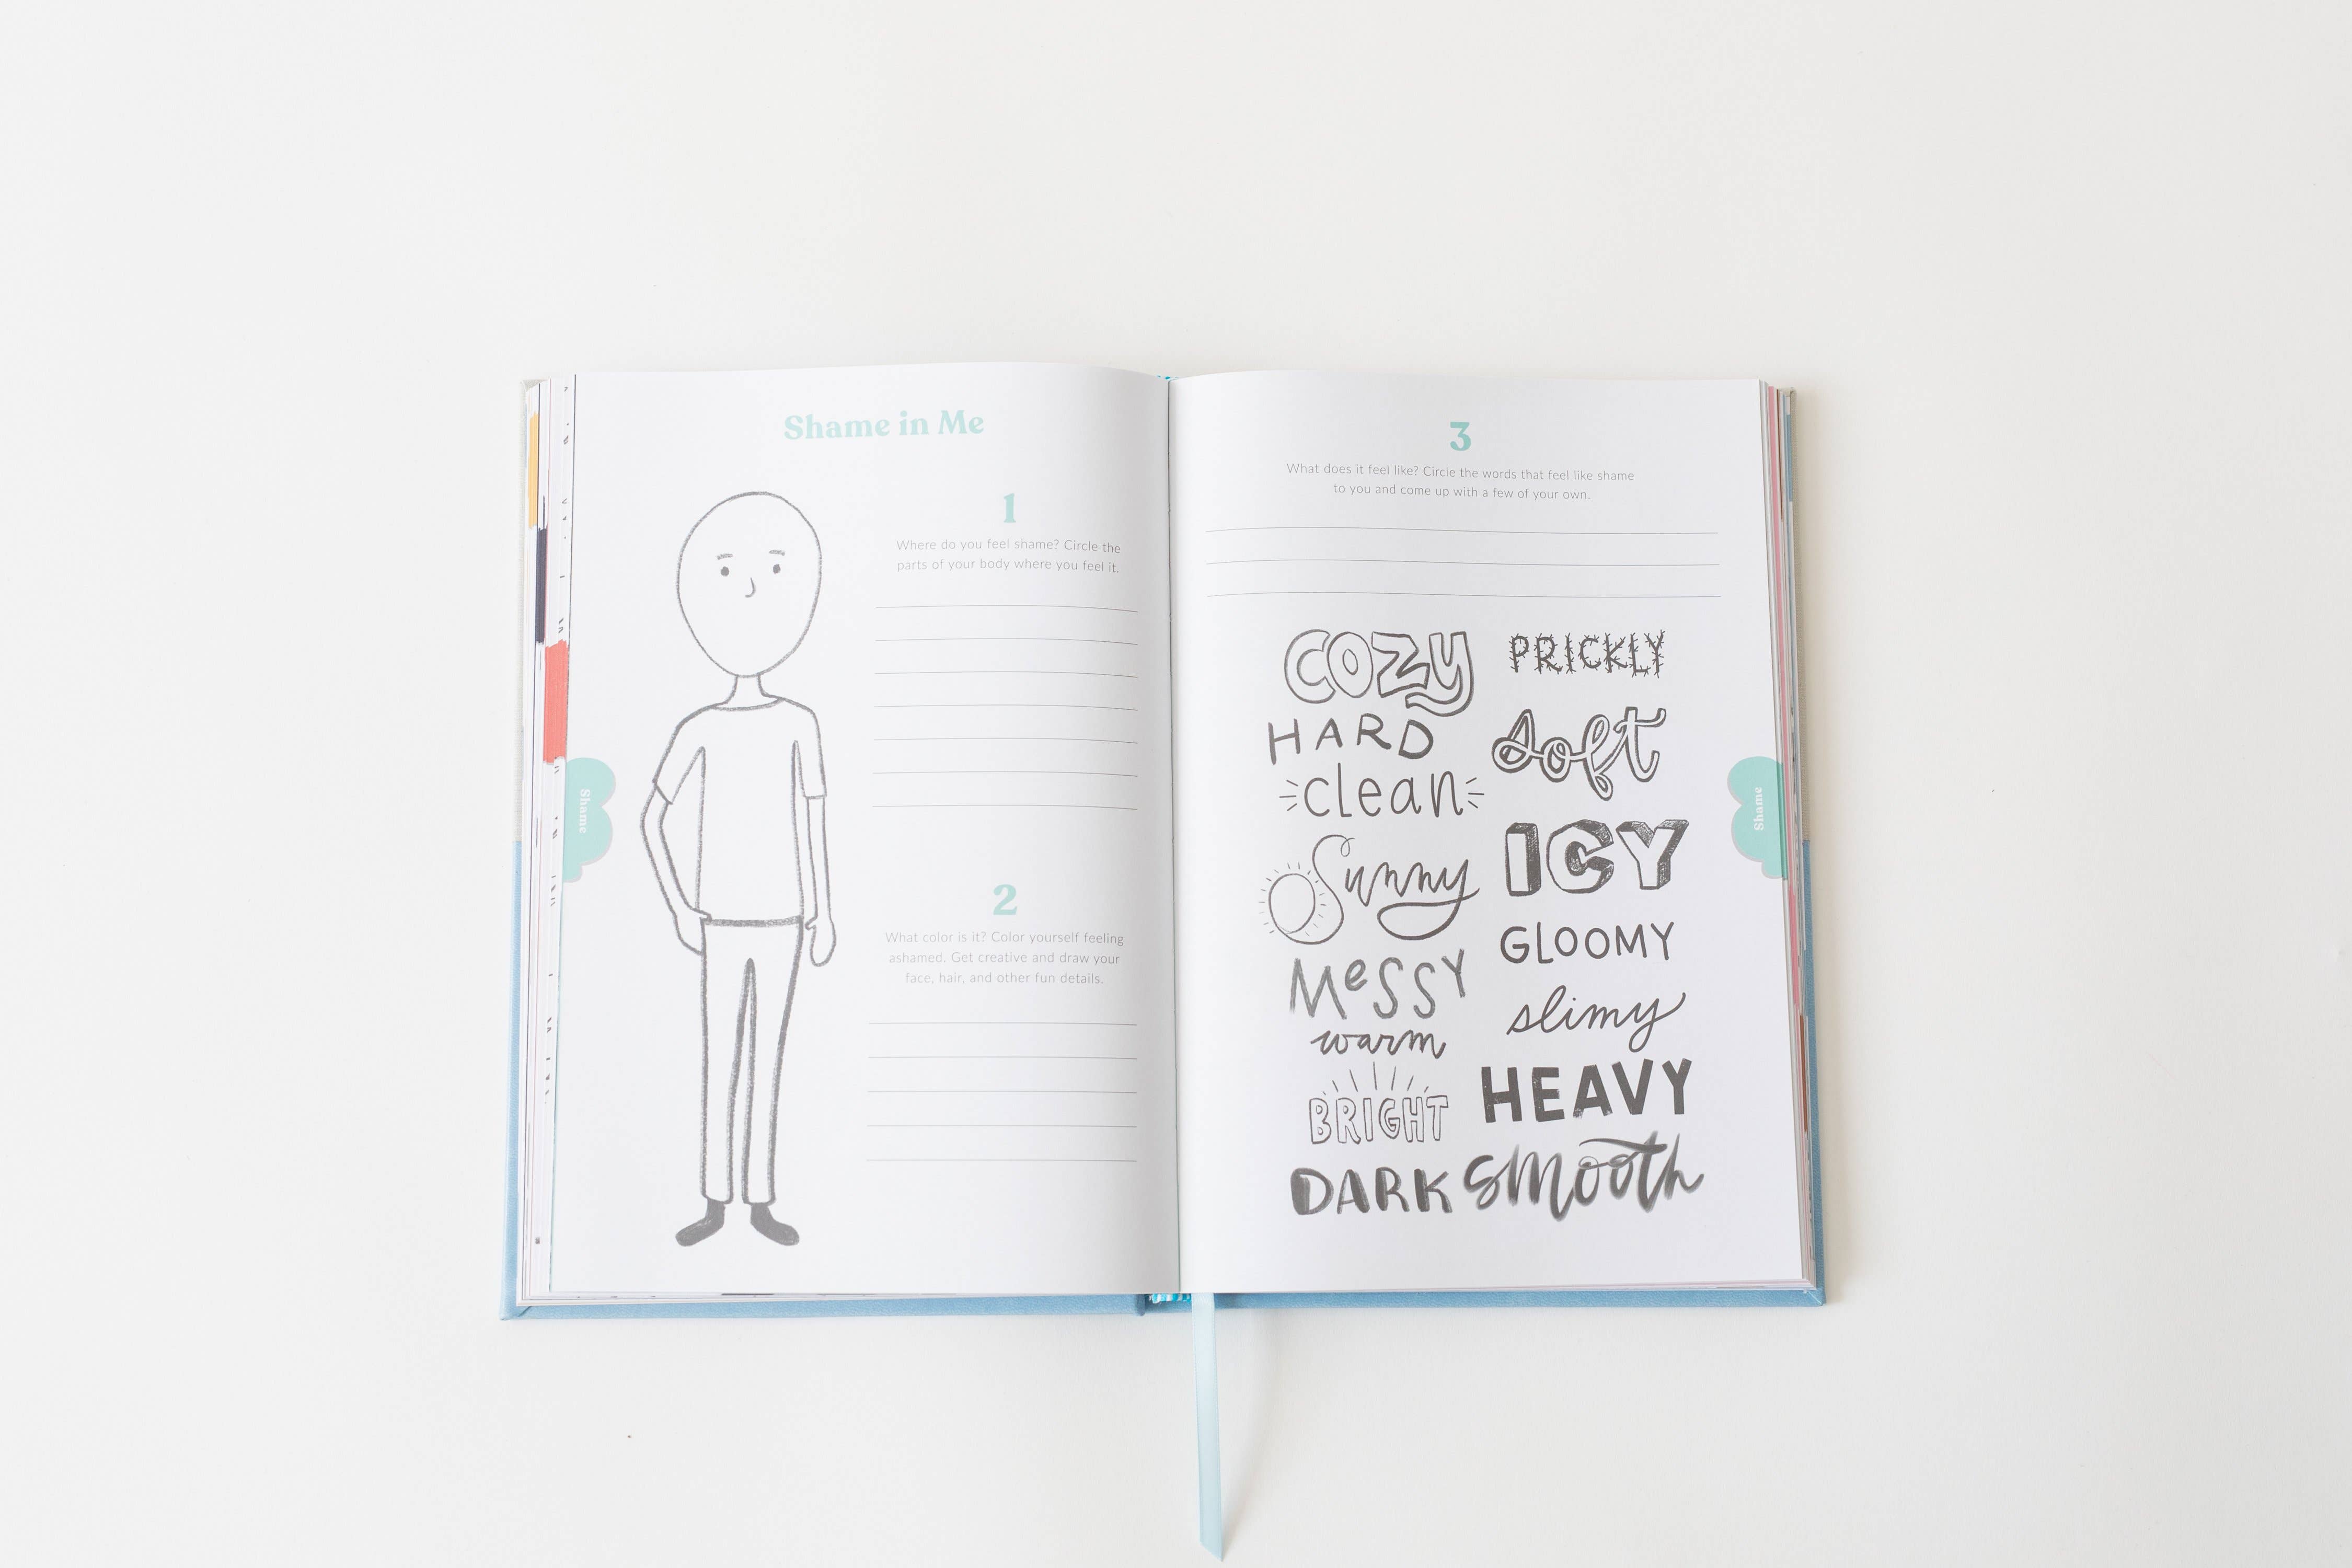 Shame in Me
1
Where do you feel shame? Circle the
parts of your body where you feel it.
2
What color is it? Color yourself feeling
ashamed. Get creative and draw your
face, hair, and other fun details.
Shame
3
What does it feel like? Circle the words that feel like shame
to you and come up with a few of your own.
COZY
HARD
clean
Sunny
MeSSY
warm
BRIGHT
DARK
PRICKLY
soft
ICY
GLOOMY
slimy
HEAVY
smooth
Shame